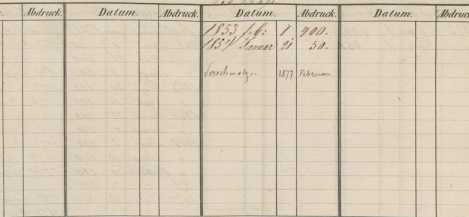 Abdruck. Datum. Abdruck. Datum. Abdruck. Datum. Abdruck.
1853 1 900.
1854 Januar 21 50.
1877 Februar